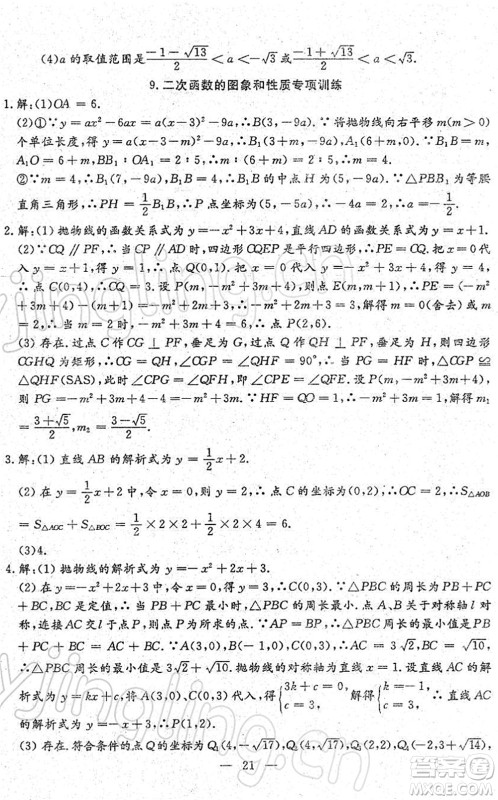 (4)a 的取值范围是 \frac{-1-\sqrt{13}}{2} < a < -\sqrt{3} 或 \frac{-1+\sqrt{13}}{2} < a < \sqrt{3}.
9.二次函数的图象和性质专项训练
1.解:(1)OA = 6.
(2)①∵y = ax² - 6ax = a(x - 3)² - 9a,∴B(3, - 9a). ∵将抛物线向右平移 m(m > 0)
个单位长度,得 y = a(x - 3 - m)² - 9a,∴B₁(3 + m, - 9a),A₁(6 + m,0). ∵BB₁ = m,
A₁O = 6 + m,BB₁ : OA₁ = 2 : 5,∴m : (m + 6) = 2 : 5,∴m = 4.
②∵m = 4,∴B₁(7, - 9a),B₁B = 4,∴B₁B 的中点 H 为(5, - 9a). ∵△PBB₁ 为等腰
直角三角形,∴PH = \frac{1}{2}B₁B = 2,∴P 点坐标为(5, - 5a),∴ - 4a = - 2,∴a = \frac{1}{2}.
2.解:(1) 抛物线的函数关系式为 y = - x² + 3x + 4,直线 AD 的函数关系式为 y = x + 1.
(2)∵CQ ∥ PF,∴当 CP ∥ AD 时,四边形 CQEP 是平行四边形,∴PE = CQ. 把 x = 0 代
入 y = - x² + 3x + 4,得 y = 4,∴点 C(0,4). 把 x = 0 代入 y = x + 1,得 y = 1,∴点
Q(0,1),∴CQ = 3. 设 P(m, - m² + 3m + 4),则点 E(m,m + 1),∴PE = (- m² +
3m + 4) - (m + 1) = - m² + 2m + 3,∴ - m² + 2m + 3 = 3,解得 m = 0(舍去) 或 m =
2,∴m = 2.
(3) 存在. 过点 C 作 CG ⊥ PF,垂足为 G,过点 Q 作 QH ⊥ PF,垂足为 H,则四边形
CGHQ 为矩形,∴CG = QH,∴∠CGF = ∠QHF = 90°,∴当 PG = FH 时,△CGP ≌
△QHF(SAS),此时,∠CPG = ∠QFH,即∠CPF = ∠QFP. 由 P(m, - m² + 3m + 4),
则 PG = - m² + 3m + 4 - 4 = - m² + 3m. ∵HF = GC = m,∴ - m² + 3m = 1. 解得 m₁
= \frac{3+\sqrt{5}}{2},m₂ = \frac{3-\sqrt{5}}{2}.
3.解:(1) 直线 AB 的解析式为 y = \frac{1}{2}x + 2.
(2) 在 y = \frac{1}{2}x + 2 中,令 x = 0,则 y = 2,∴点 C 的坐标为(0,2),∴OC = 2,∴S△AOB
= S△AOC + S△BOC = \frac{1}{2} × 2 × 2 + \frac{1}{2} × 2 × 4 = 6.
(3)4.
4.解:(1) 抛物线的解析式为 y = - x² + 2x + 3.
(2) 在 y = - x² + 2x + 3 中,令 x = 0,得 y = 3,∴C(0,3). ∵△PBC 的周长为 PB + PC
+ BC,BC 是定值,∴当 PB + PC 最小时,△PBC 的周长最小. ∵点 A、点 B 关于对称轴 l 对
称,连接 AC 交 l 于点 P,则点 P 为所求的点. ∵AP = BP,∴△PBC 周长的最小值是 AC
+ BC. ∵A(3,0),B(- 1,0),C(0,3),∴AC = 3\sqrt{2},BC = \sqrt{10},∴△PBC
周长的最小值是 3\sqrt{2} + \sqrt{10}. 抛物线的对称轴为直线 x = 1. 设直线 AC 的解
析式为 y = kx + c,将 A(3,0),C(0,3) 代入,得{3k + c = 0, c = 3, 解得{k = - 1, c = 3, ∴直线 AC
的解析式为 y = - x + 3,∴P(1,2).
(3) 存在. 符合条件的点 Q 的坐标为 Q₁(4, - \sqrt{17}),Q₂(4,\sqrt{17}),Q₃(- 2,\sqrt{14}),
— 21 —